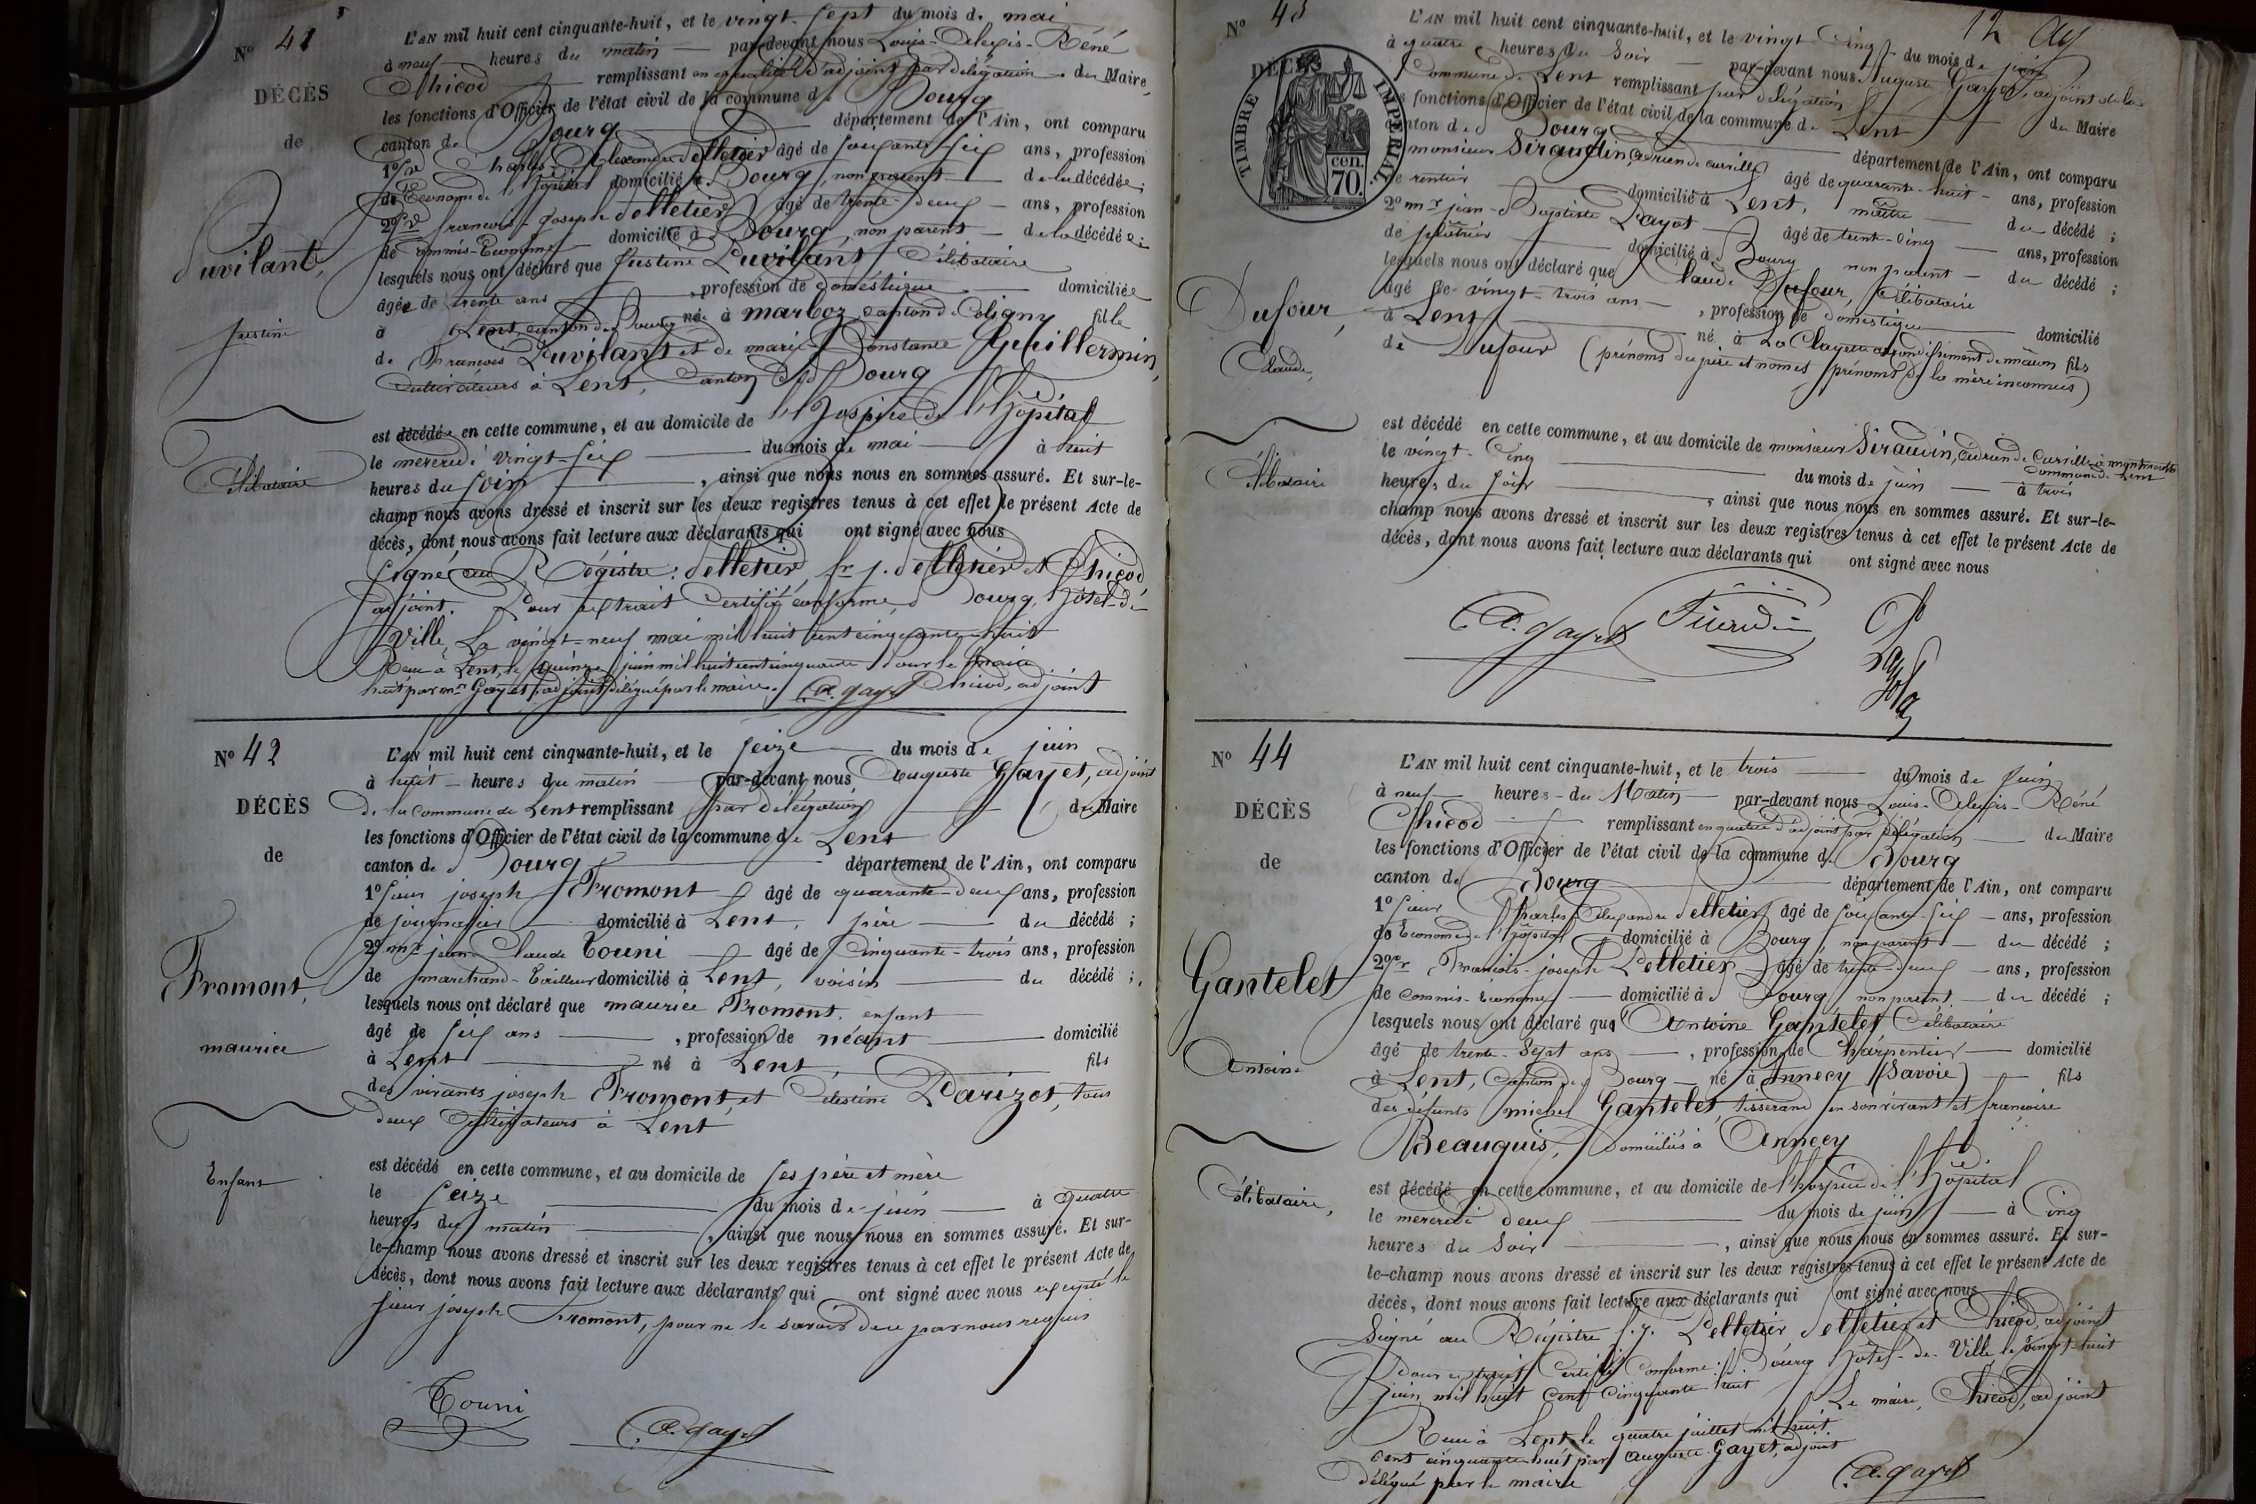 N° 41
DÉCÈS
de
Puvilant,
justine
Célibataire
L'AN mil huit cent cinquante-huit, et le vingt-sept du mois de mai
à neuf heures du matin par-devant nous Louis-Alexis-Réné
Chicod remplissant en qualité d'adjoint par délégation du Maire,
les fonctions d'Officier de l'état civil de la commune de Bourg
canton de Bourg département de l'Ain, ont comparu
1° Sr Charles Alexandre Pelletier âgé de soixante-six ans, profession
de Econome de l'hôpital domicilié à Bourg, non parent de la décédée;
2° Sr françois-joseph Pelletier âgé de trente-deux ans, profession
de commis-Econome domicilié à Bourg, non parent de la décédée;
lesquels nous ont déclaré que justine Puvilant Célibataire
âgée de trente ans, profession de doméstique domiciliée
à Lent, canton de Bourg née à marboz, canton de Coligny fille
de François Puvilant et de marie Constance Guillermin,
cultivateurs à Lent, Canton de Bourg
est décédée en cette commune, et au domicile de l'hospice de l'hôpital
le mercredi vingt-six du mois de mai à huit
heures du soir, ainsi que nous nous en sommes assuré. Et sur-le-
champ nous avons dressé et inscrit sur les deux registres tenus à cet effet le présent Acte de
décès, dont nous avons fait lecture aux déclarants qui ont signé avec nous
signé au Régistre: Pelletier, fr. j. Pelletier et Chicod
adjoint. Pour extrait Certifié conforme, à Bourg, hôtel-de-
Ville, Le vingt-neuf mai mil huit cent cinquante-huit
Recu à Lent, le quinze juin mil huit cent cinquante Pour le maire
huit par mr Gayet, adjoint délégué par le maire. A. gayet Chicod, adjoint
N° 42
DÉCÈS
de
Fromont,
maurice
Enfant
L'AN mil huit cent cinquante-huit, et le seize du mois de juin
à huit heures du matin par-devant nous Auguste Gayet, adjoint
de la commune de Lent remplissant par délégation du Maire
les fonctions d'Officier de l'état civil de la commune de Lent
canton de Bourg département de l'Ain, ont comparu
1° sieur joseph Fromont âgé de quarante-deux ans, profession
de journalier domicilié à Lent, père du décédé;
2° mr jean Claude Touni âgé de cinquante-trois ans, profession
de marchand-Tailleur domicilié à Lent, voisin du décédé;
lesquels nous ont déclaré que maurice Fromont, enfant
âgé de six ans, profession de néant domicilié
à Lent né à Lent, fils
des vivants joseph Fromont, et Célestine Parizot, tous
deux Cultivateurs à Lent
est décédé en cette commune, et au domicile de ses père et mère
le seize du mois de juin à quatre
heures du matin, ainsi que nous nous en sommes assuré. Et sur-
le-champ nous avons dressé et inscrit sur les deux registres tenus à cet effet le présent Acte de
décès, dont nous avons fait lecture aux déclarants qui ont signé avec nous excepté le
sieur joseph Fromont, pour ne le savoir de ce par nous requis
Touni
A. gayet
N° 43
12
DÉCÈS
TIMBRE IMPERIAL
cen. 70.
Dufour,
Claude,
Célibataire
L'AN mil huit cent cinquante-huit, et le vingt cinq du mois de juin
à quatre heures du soir par-devant nous Auguste Gayet, adjoint de la
Commune de Lent remplissant par délégation du Maire
les fonctions d'Officier de l'état civil de la commune de Lent
canton de Bourg département de l'Ain, ont comparu
monsieur Siraudin, adrien de curville âgé de quarante-huit ans, profession
de rentier domicilié à Lent, maître du décédé;
2° mr jean-Baptiste Payot âgé de trente-cinq ans, profession
de domicilié à Bourg non parent du décédé;
lesquels nous ont déclaré que Claude Dufour, Célibataire
âgé de vingt-trois ans, profession de domestique domicilié
à Lent né à La Clayette arrondissement de mâcon fils
de Dufour (prénoms du père et noms, prénoms de la mère inconnus)
est décédé en cette commune, et au domicile de monsieur Siraudin, adrien de Curville à commune de Lent
le vingt-cinq du mois de juin à trois
heures du soir, ainsi que nous nous en sommes assuré. Et sur-le-
champ nous avons dressé et inscrit sur les deux registres tenus à cet effet le présent Acte de
décès, dont nous avons fait lecture aux déclarants qui ont signé avec nous
A. gayet Siraudin
N° 44
DÉCÈS
de
Gantelet
Antoine
Célibataire,
L'AN mil huit cent cinquante-huit, et le trois du mois de Juin
à neuf heures du Matin par-devant nous Louis-Alexis-Réné
Chicod remplissant en qualité d'adjoint par délégation du Maire
les fonctions d'Officier de l'état civil de la commune de Bourg
canton de Bourg département de l'Ain, ont comparu
1° sieur Charles Alexandre Pelletier âgé de soixante-six ans, profession
de Econome de l'hôpital domicilié à Bourg, non parent du décédé;
2° Sr François-joseph Pelletier âgé de trente-deux ans, profession
de commis-Econome domicilié à Bourg non parent du décédé;
lesquels nous ont déclaré que Antoine Gantelet Célibataire
âgé de trente-sept ans, profession de Charpentier domicilié
à Lent, Canton de Bourg né à Annecy (Savoie) fils
des défunts michel Gantelet, tisserand en son vivant et françoise
Beauquis, domiciliés à Annecy
est décédé en cette commune, et au domicile de l'hospice de l'hôpital
le mercredi deux du mois de juin à Cinq
heures du Soir, ainsi que nous nous en sommes assuré. Et sur-
le-champ nous avons dressé et inscrit sur les deux registres tenus à cet effet le présent Acte de
décès, dont nous avons fait lecture aux déclarants qui ont signé avec nous
Signé au Régistre f. j. Pelletier Pelletier et Chicod, adjoint
Pour extrait Certifié Conforme: Bourg Hôtel-de-Ville le vingt-huit
juin mil huit cent cinquante huit
Le maire, Chicod, adjoint
Recu à Lent, le quatre juillet mil huit
cent cinquante-huit par Auguste Gayet, adjoint
délégué par le maire
A. gayet